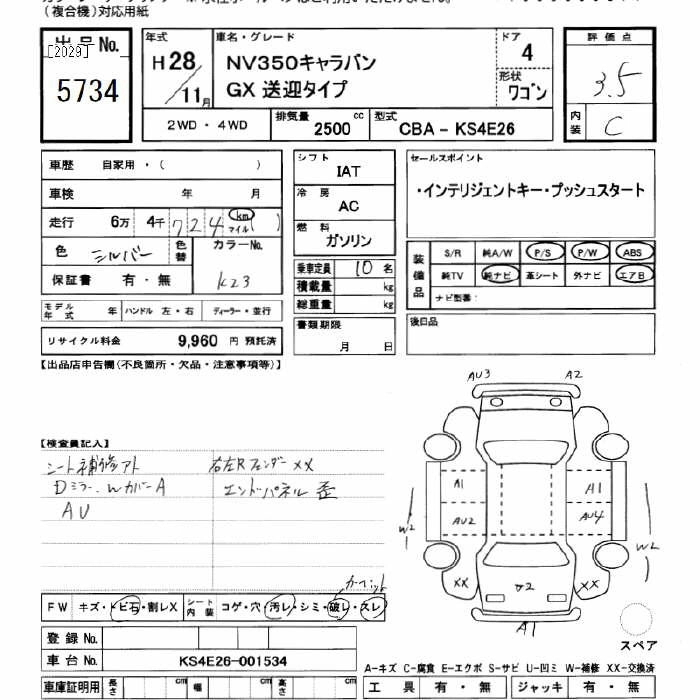 (複合機)対応用紙
出品No.
[2029]
5734
年式
H28/11月
車名・グレード
NV350キャラバン
GX 送迎タイプ
ドア
4
形状
ワゴン
2WD・4WD
排気量 2500 cc
型式 CBA - KS4E26
評価点
3.5
内装 C
車歴 自家用・( )
車検 年 月
走行 6万 4千 724 km マイル ( )
色 シルバー 色替 カラーNo. K23
保証書 有・無
モデル年式 年 ハンドル 左・右 ディーラー・並行
リサイクル料金 9,960 円 預託済
シフト IAT
冷房 AC
燃料 ガソリン
乗車定員 10 名
積載量 kg
総重量 kg
書類期限
月 日
セールスポイント
・インテリジェントキー・プッシュスタート
装備品
S/R 純A/W P/S P/W ABS
純TV 純ナビ 革シート 外ナビ エアB
ナビ型番:
後日品
【出品店申告欄(不良箇所・欠品・注意事項等)】
【検査員記入】
シート補修アト 右左Rフェンダー XX
Dミラー、WカバーA エンドパネル歪
AU
カーペット
FW キズ・トビ石・割レX シート内装 コゲ・穴・汚レ・シミ・破レ・スレ
登録No.
車台No. KS4E26-001534
車庫証明用 長さ cm 幅 cm 高さ cm
AU3 A2
A1 A1
AU2 AU4
W2 W2
XX XX
A1
スペア
A-キズ C-腐食 E-エクボ S-サビ U-凹ミ W-補修 XX-交換済
工具 有・無 ジャッキ 有・無